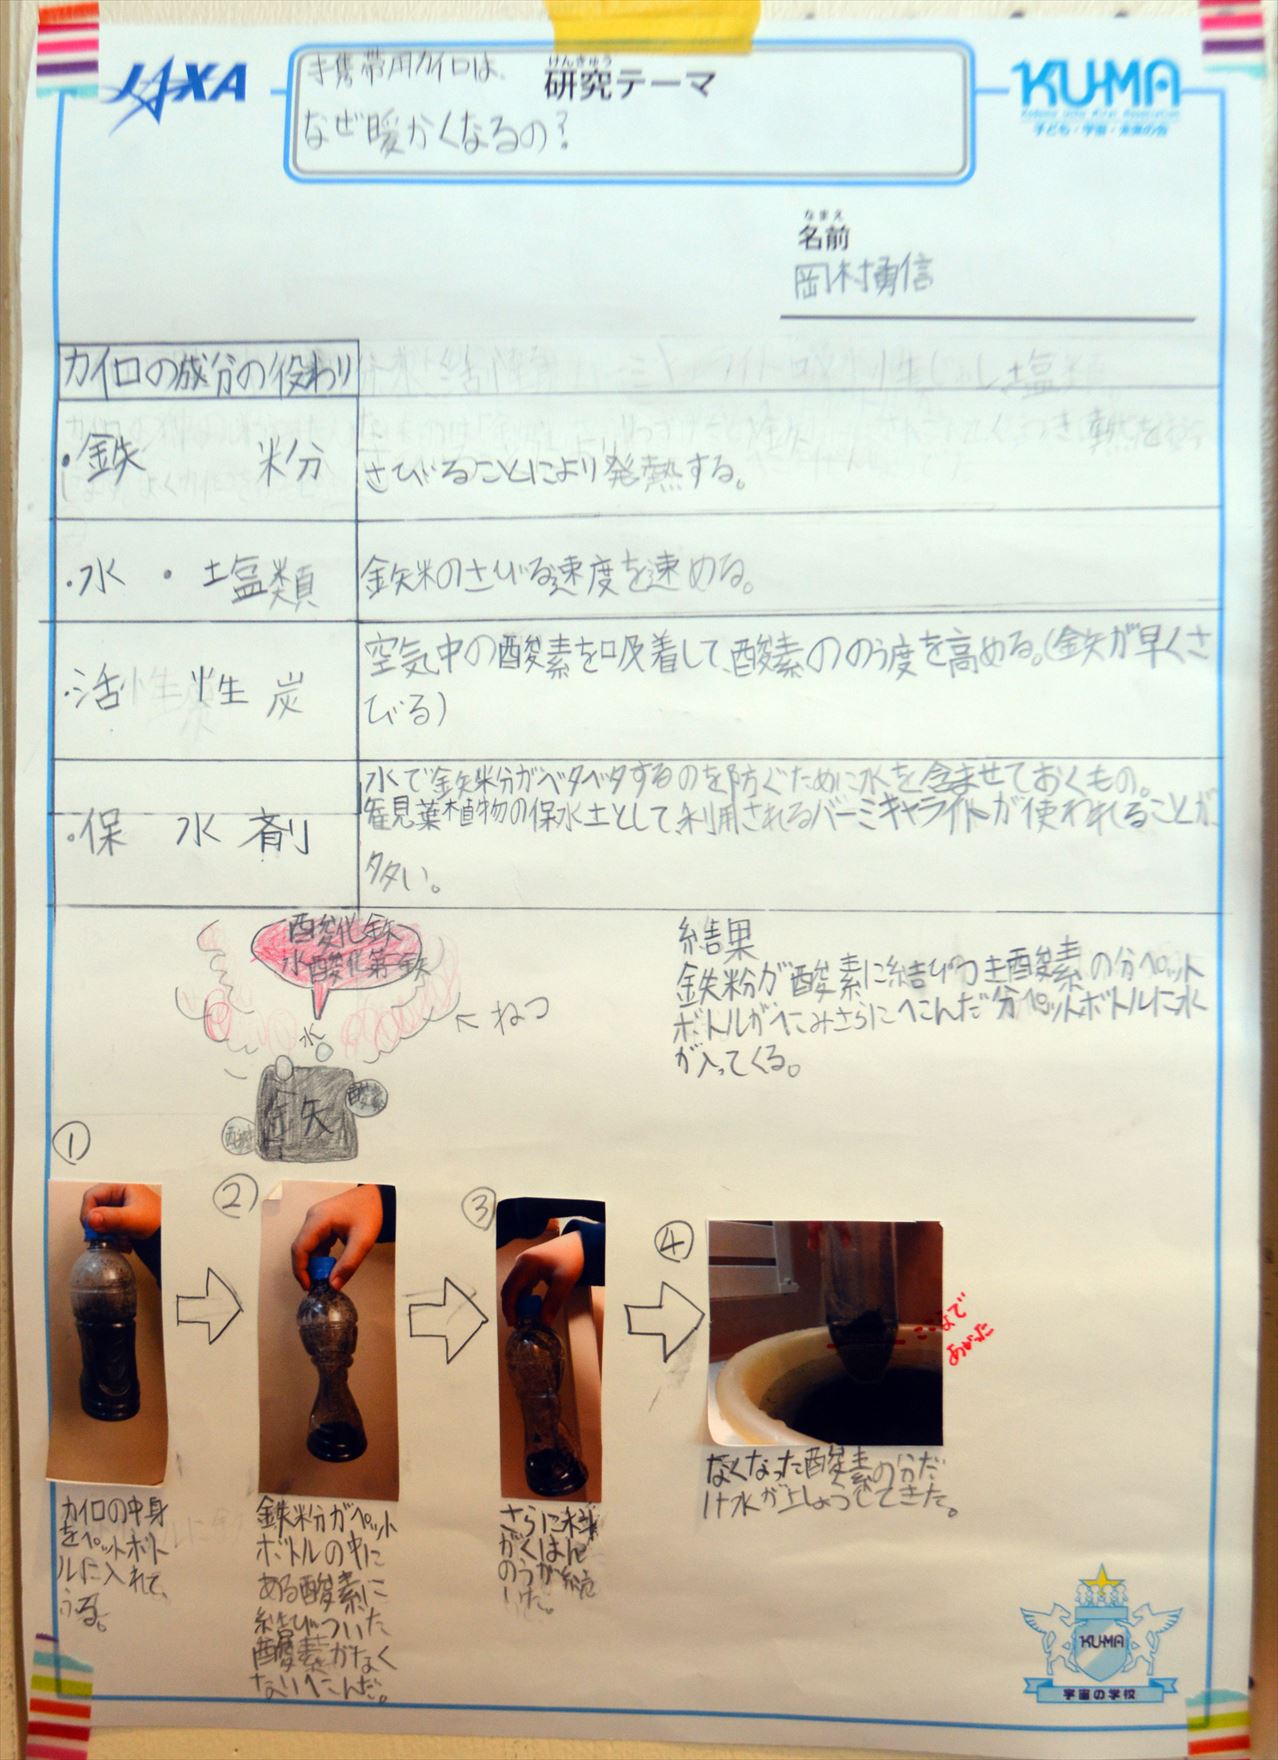 JAXA
けんきゅう
研究テーマ
携帯用カイロは、
なぜ暖かくなるの?
KU-MA
子ども・宇宙・未来の会
なまえ
名前
岡村勇信
カイロの成分の役わり
・鉄 粉
さびることにより発熱する。
・水 ・ 塩類
鉄粉のさびる速度を速める。
・活 性 炭
空気中の酸素を吸着して、酸素ののう度を高める。(鉄が早くさ
びる)
・保 水 剤
水で鉄粉がベタベタするのを防ぐために水を含ませておくもの。
観葉植物の保水土として利用されるバーミキャライトが使われることが
多い。
酸化鉄
水酸化第二鉄
水
←ねつ
鉄
結果
鉄粉が酸素に結びつき酸素の分ペット
ボトルがへこみさらにへこんだ分ペットボトルに水
が入ってくる。
①
②
③
④
カイロの中身
をペットボト
ルに入れて、
ふる。
鉄粉がペット
ボトルの中に
ある酸素に
結びついた
酸素がなく
なりへこんだ。
さらに
のうが続
いた。
ここまで
あがった
なくなった酸素の分だ
け水が上しょうしてきた。
KU-MA
宇宙の学校